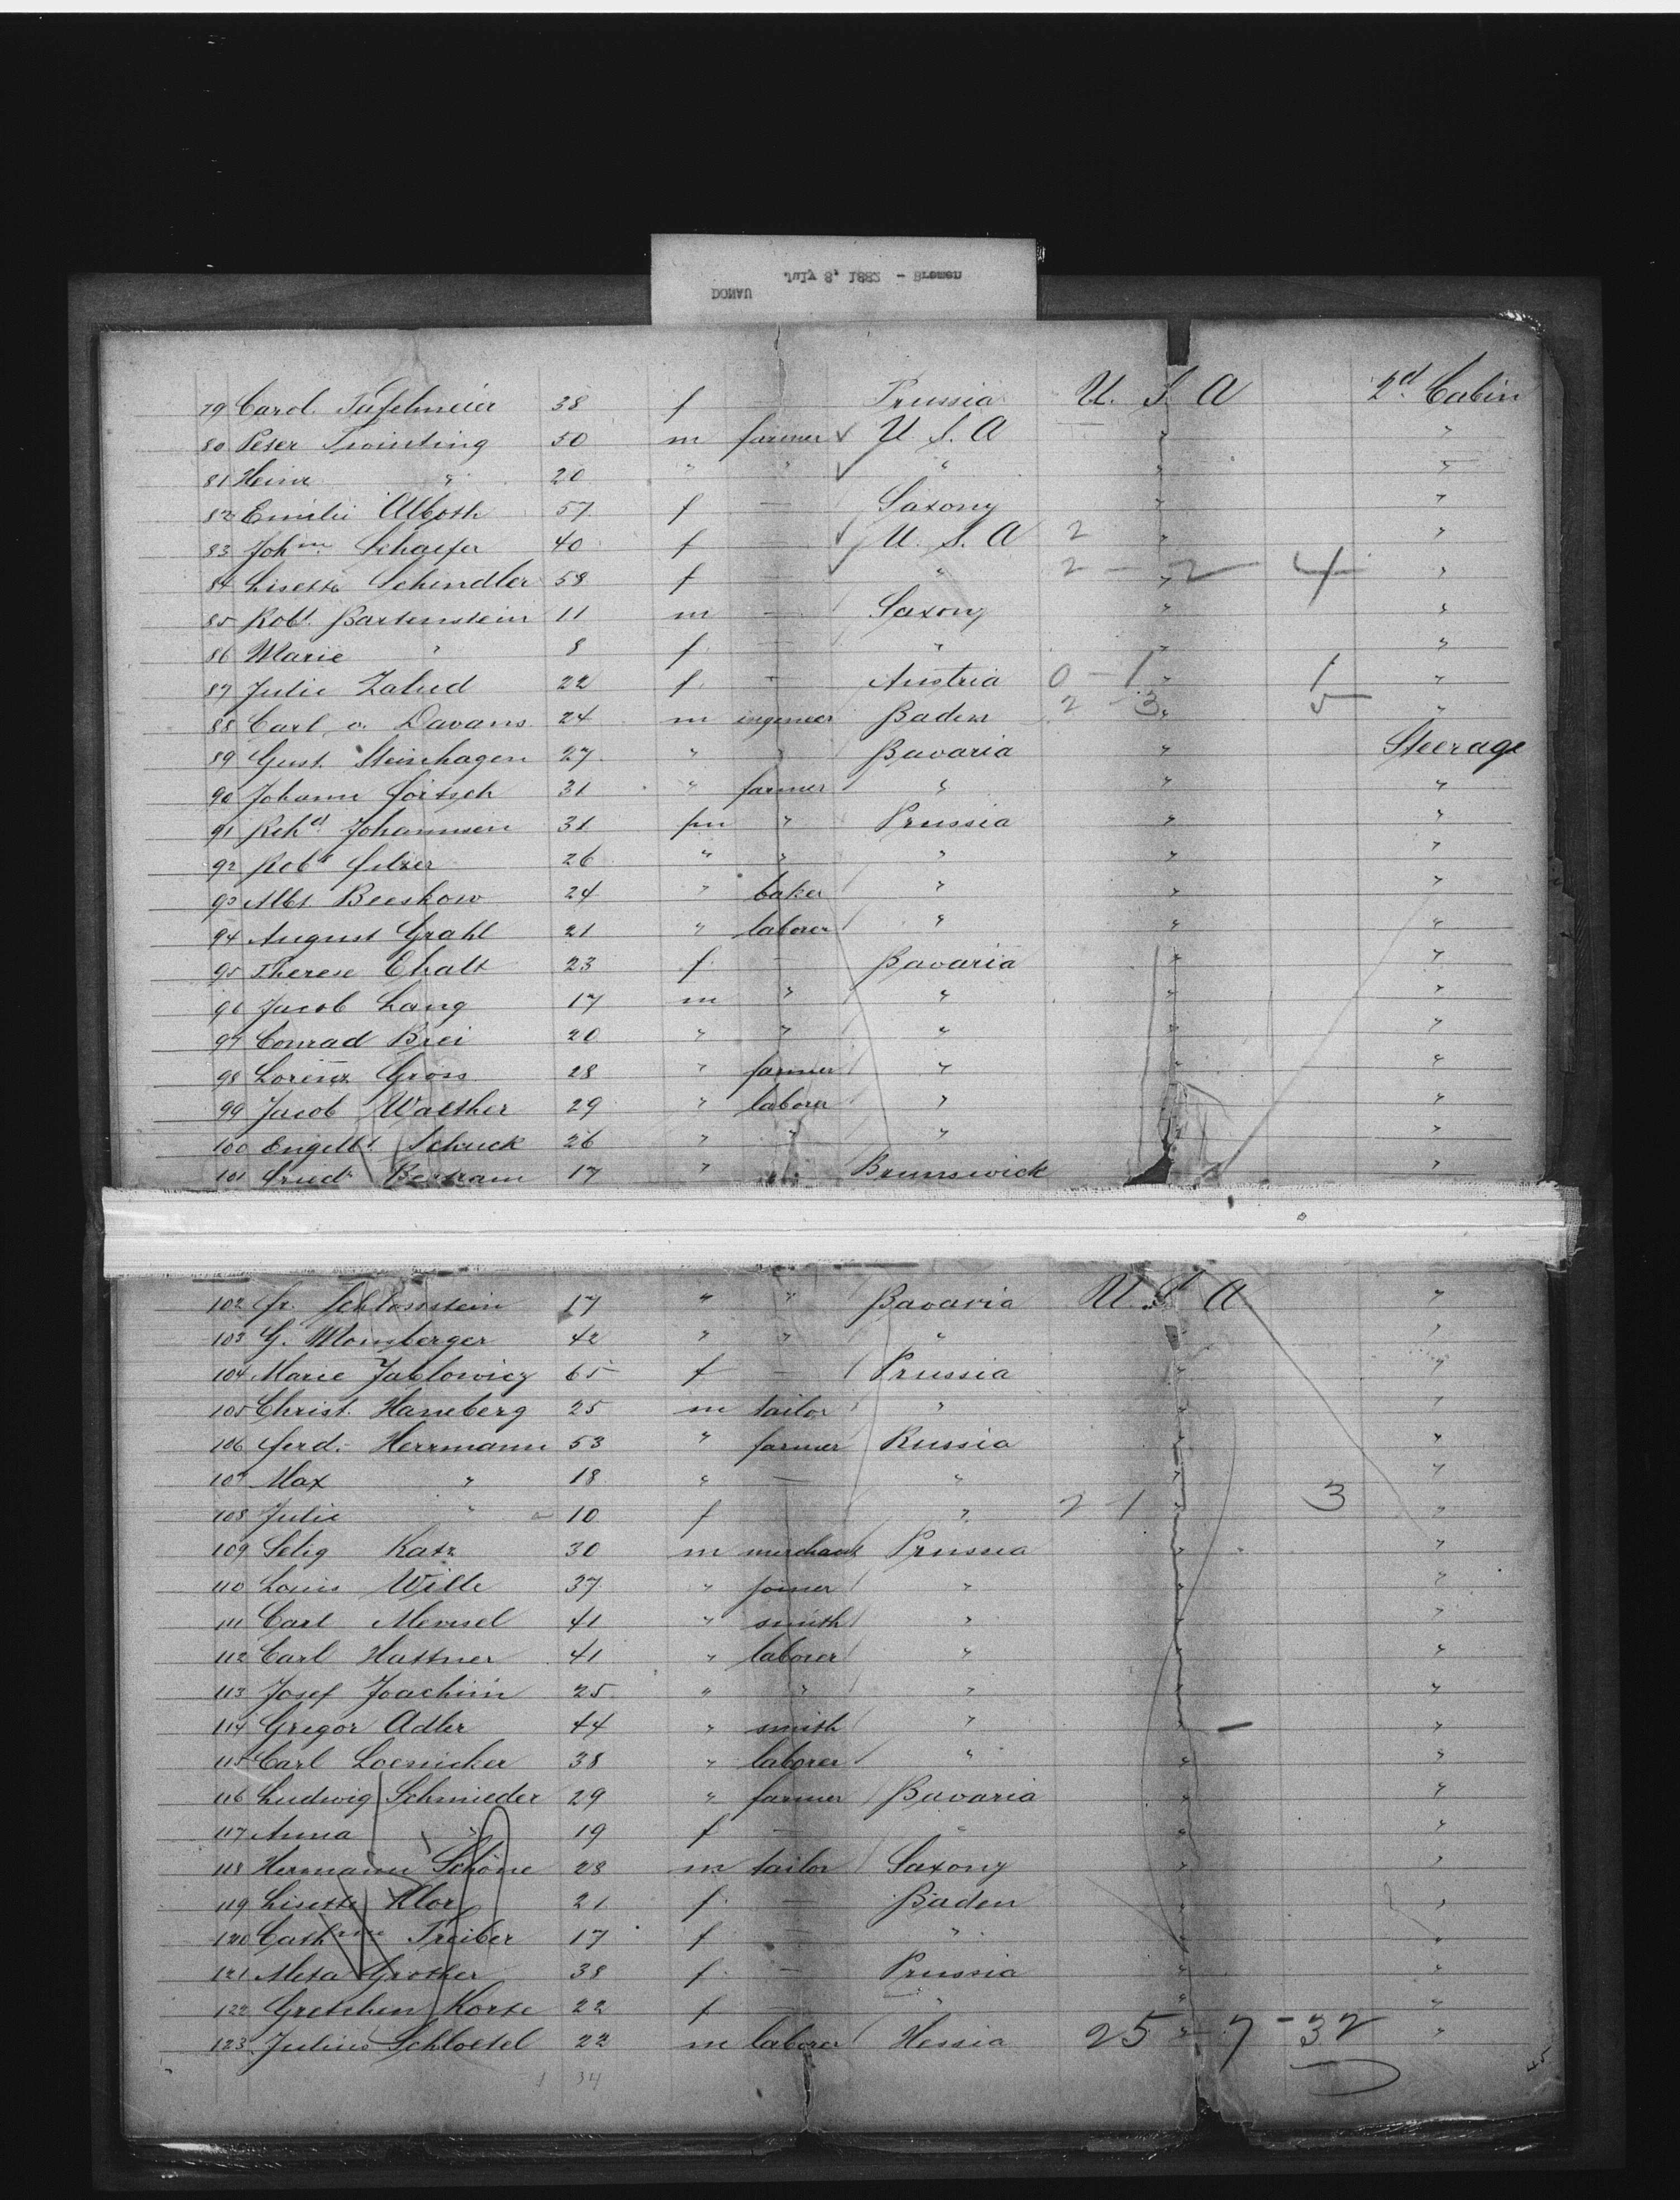 July 8, 1882 - Bremen
DONAU
79 Carol. Tafelmeier 38 f — Prussia U. S. A 2d Cabin
80 Peter Twinting 50 m farmer ✓ U. S. A " "
81 Heinr " 20 " " ✓ " " "
82 Emilie Alboth 57 f — Saxony " "
83 Johne Schaefer 40 f — ✓ U. S. A 2 " "
84 Lisette Schindler 58 f — ✓ " 2 - 2 4 "
85 Robt. Bartenstein 11 m — Saxony " "
86 Marie " 8 f — " " "
87 Julie Zalud 22 f — Austria 0 - 1 " 1 "
88 Carl v. Davans 24 m ingenieer Baden 2 3 " 5 "
89 Gust. Steinhagen 27 " " Bavaria " Steerage
90 Johann Foitsch 31 " farmer " " "
91 Rchd Johannsen 31 m " Prussia " "
92 Robt Filzer 26 " " " " "
93 Albt. Beeskow 24 " baker " " "
94 August Grahl 21 " laborer " " "
95 Therese Chalt 23 f — Bavaria " "
96 Jacob Lang 17 m " " " "
97 Conrad Brei 20 " " " " "
98 Lorenz Gross 28 " farmer " " "
99 Jacob Walther 29 " laborer " " "
100 Engelbt Schuck 26 " " " " "
101 Bertram 17 " " Brunswick "
102 Fr. Schlossstein 17 " " Bavaria U. S. A "
103 G. Momberger 42 " " " " "
104 Marie Jablowicz 65 f — Prussia " "
105 Christ. Haneberg 25 m tailor " " "
106 Ferd. Herrmann 53 " farmer Russia " "
107 Max " 18 " — " " "
108 Julie " 10 f " 2 1 " 3 "
109 Selig Katz 30 m merchant Prussia " "
110 Louis Wille 37 " joiner " " "
111 Carl Menzel 41 " smith " " "
112 Carl Hattner 41 " laborer " " "
113 Josef Joachim 25 " " " " "
114 Gregor Adler 44 " smith " " — "
115 Carl Loenicker 38 " laborer " " "
116 Ludwig Schmieder 29 " farmer Bavaria " "
117 Anna " 19 f — " " "
118 Hermann Schöne 28 m tailor Saxony " "
119 Lisette Klor 21 f — Baden " "
120 Cathrine Treiber 17 f — " " "
121 Meta Grother 38 f — Prussia " "
122 Gretchen Korte 22 f — " " "
123 Julius Schloetel 22 m laborer Hessia 25 " 7 - 32 "
34
45